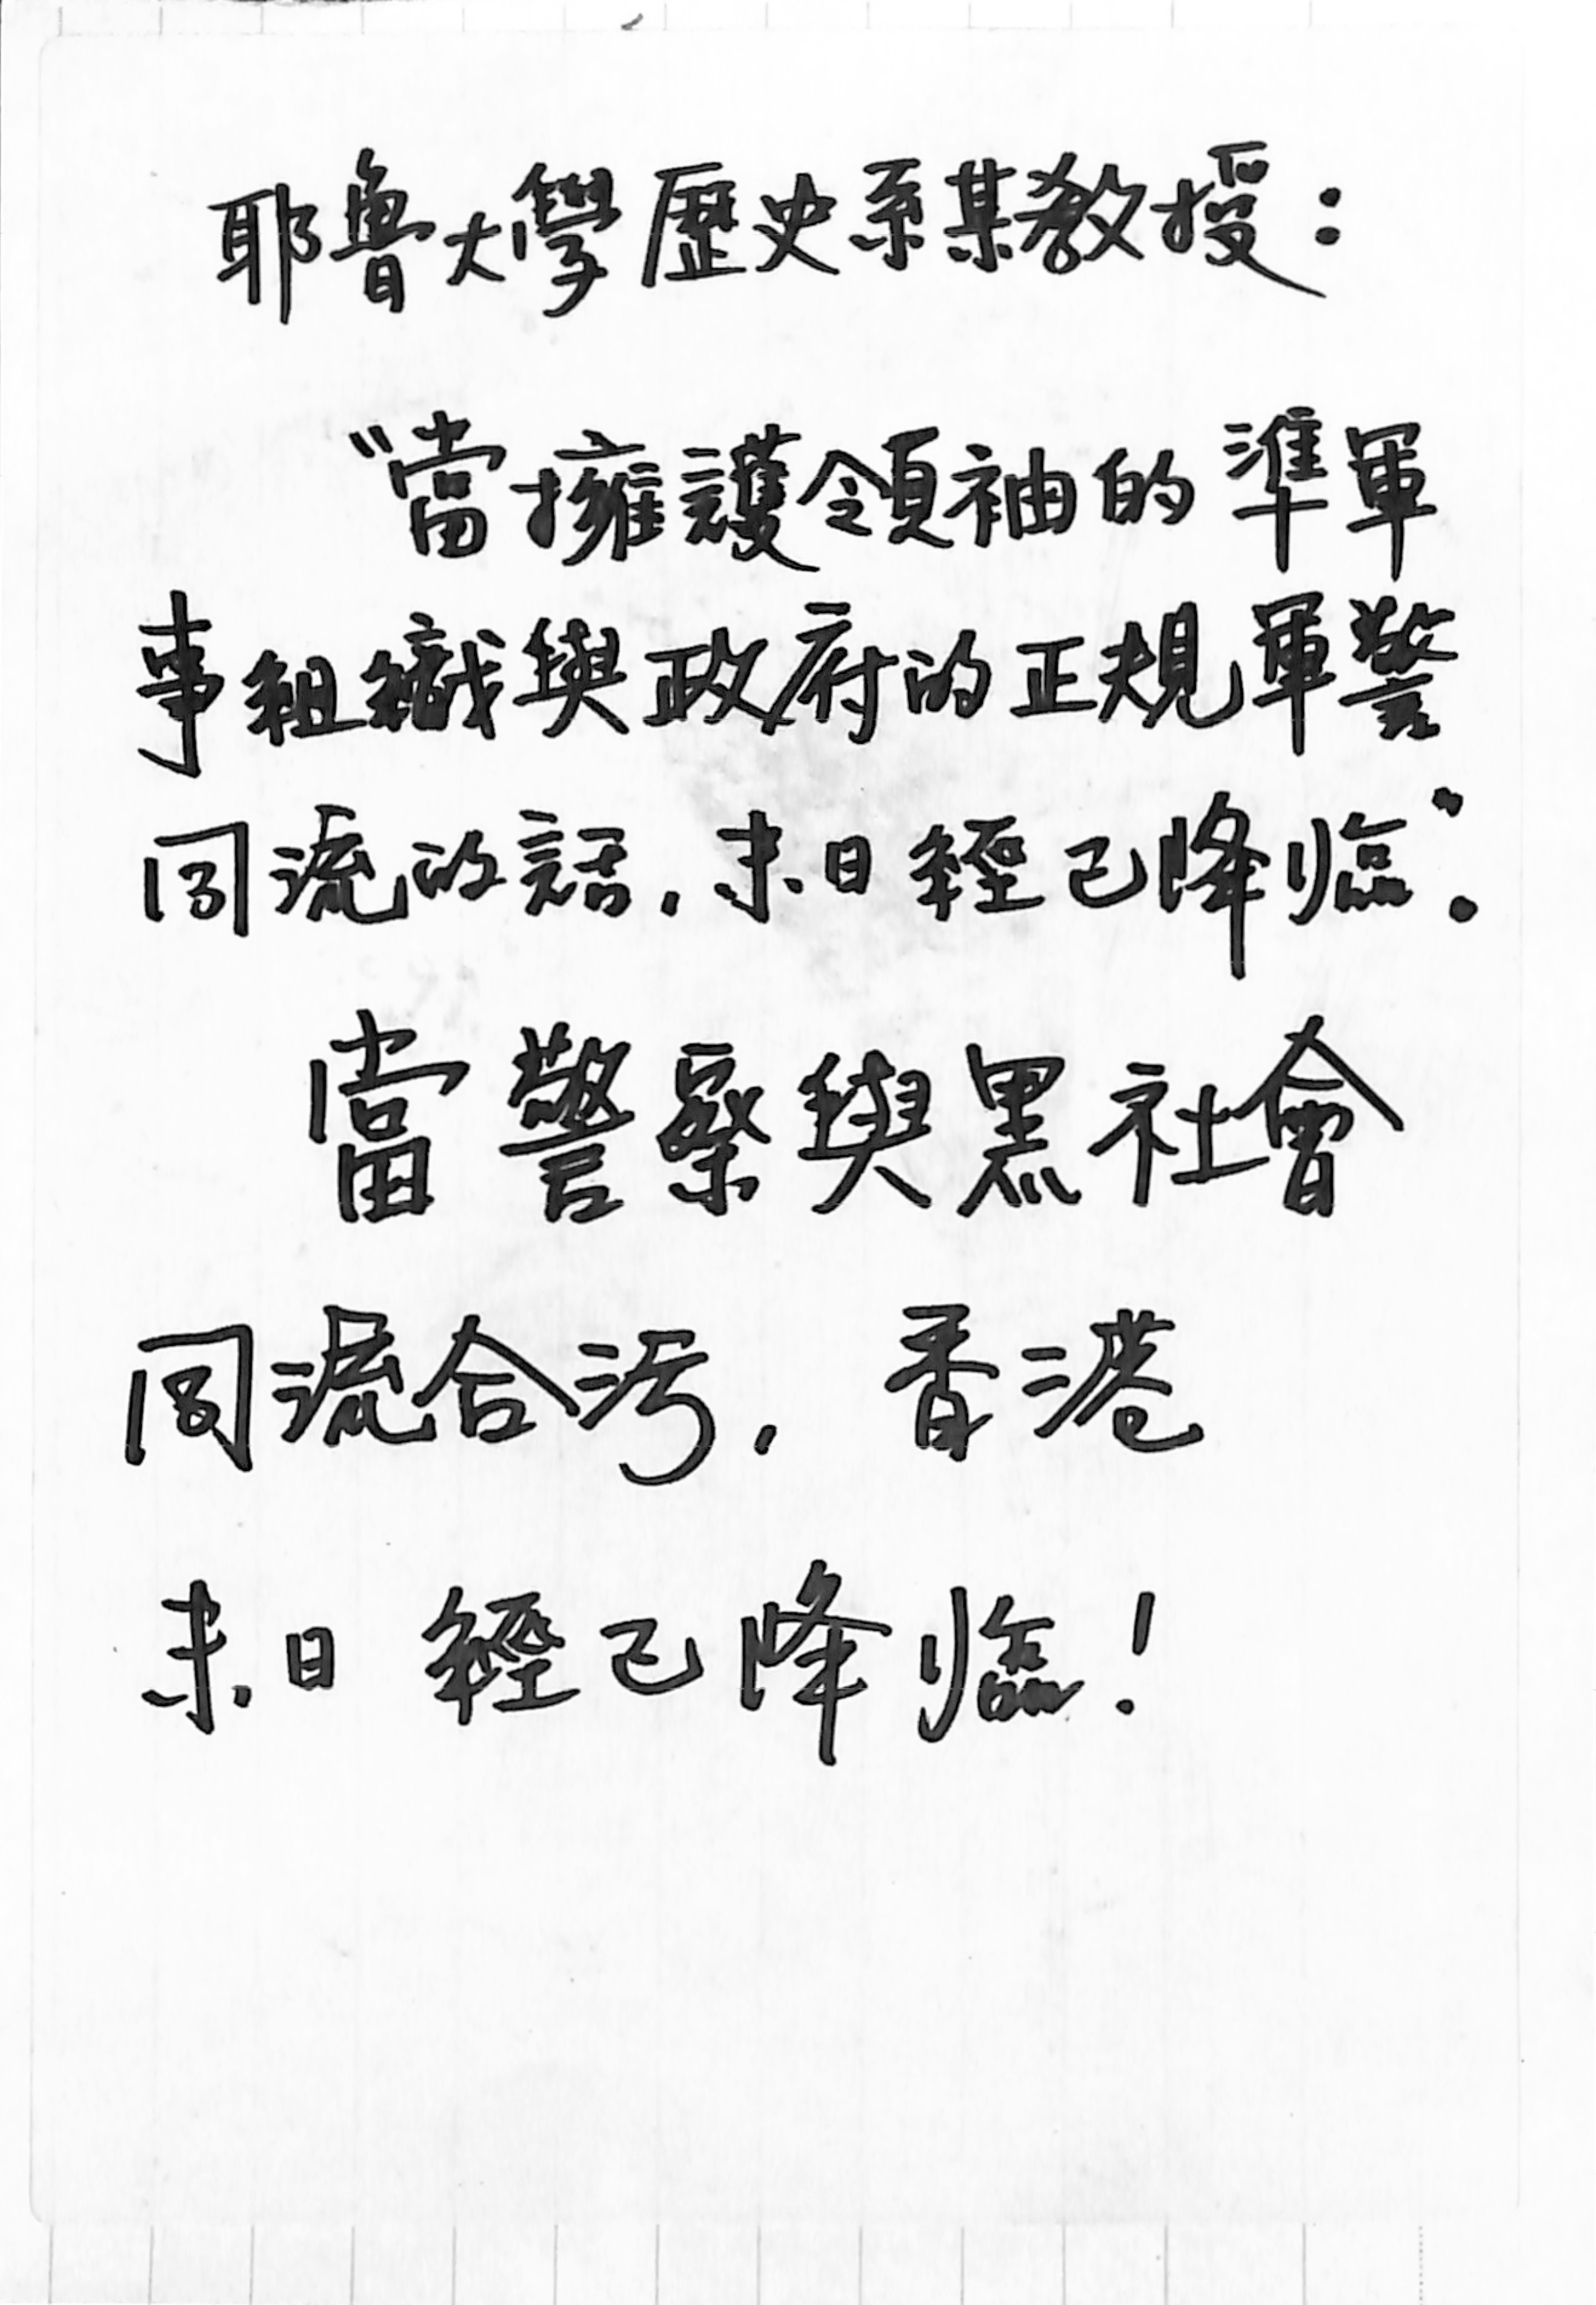 耶魯大學歷史系某教授：
“當擁護領袖的準軍
事組織與政府的正規軍警
同流的話，末日經已降臨”．
當警察與黑社會
同流合污，香港
末日經已降臨！